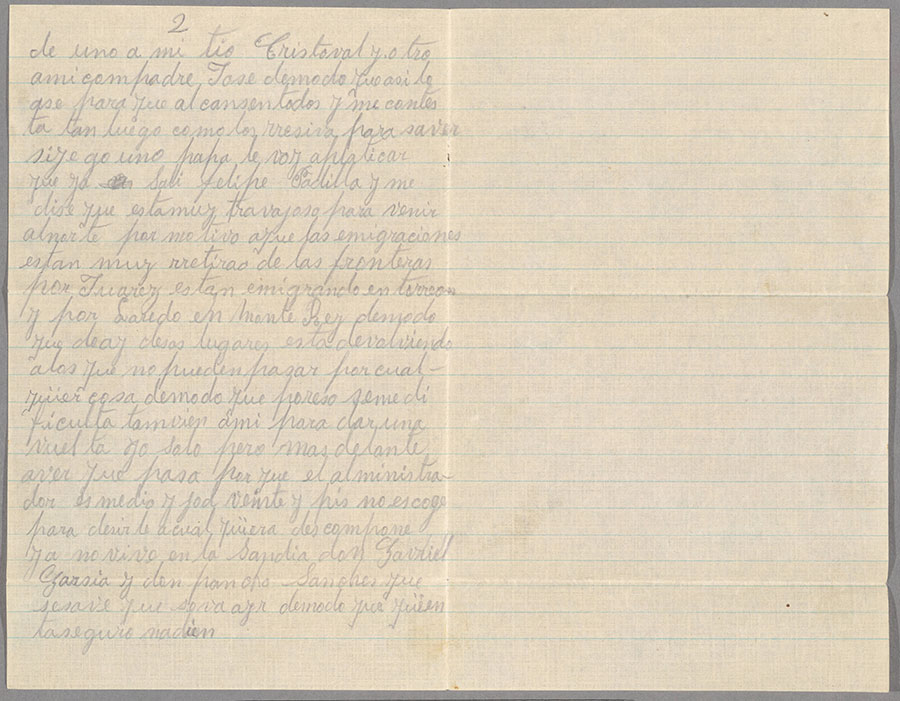 2
de uno a mi tio Cristoval y otro
ami compadre Jose demodo que asi lo
ase para que alcansentodos y me contes
ta tan luego como los rresiva para saver
si ego uno papa le voy aplaticar
que ya Sali felipe Padilla y me
dise que estamuy travajoso para venir
alnorte por motivo aque las emigraciones
estan muy rretirao de las fronteras
por Juarez estan emigrando en torreon
y por Laredo en Monte Rey demodo
que deay desos lugares esta devolviendo
alos que no pueden pagar por cual-
quier cosa demodo que poreso semedi
ficulta tamvien ami para dar una
vuelta yo solo pero mas delante
aver que pasa por que el alministra
dor es medio y pis no escoge
para desirle acual quiera descompone
ya no vivo en la Sandia don Gavriel
Garsia y don pancho Sanches que
sesave que seva air demodo que quien
taseguro nadien